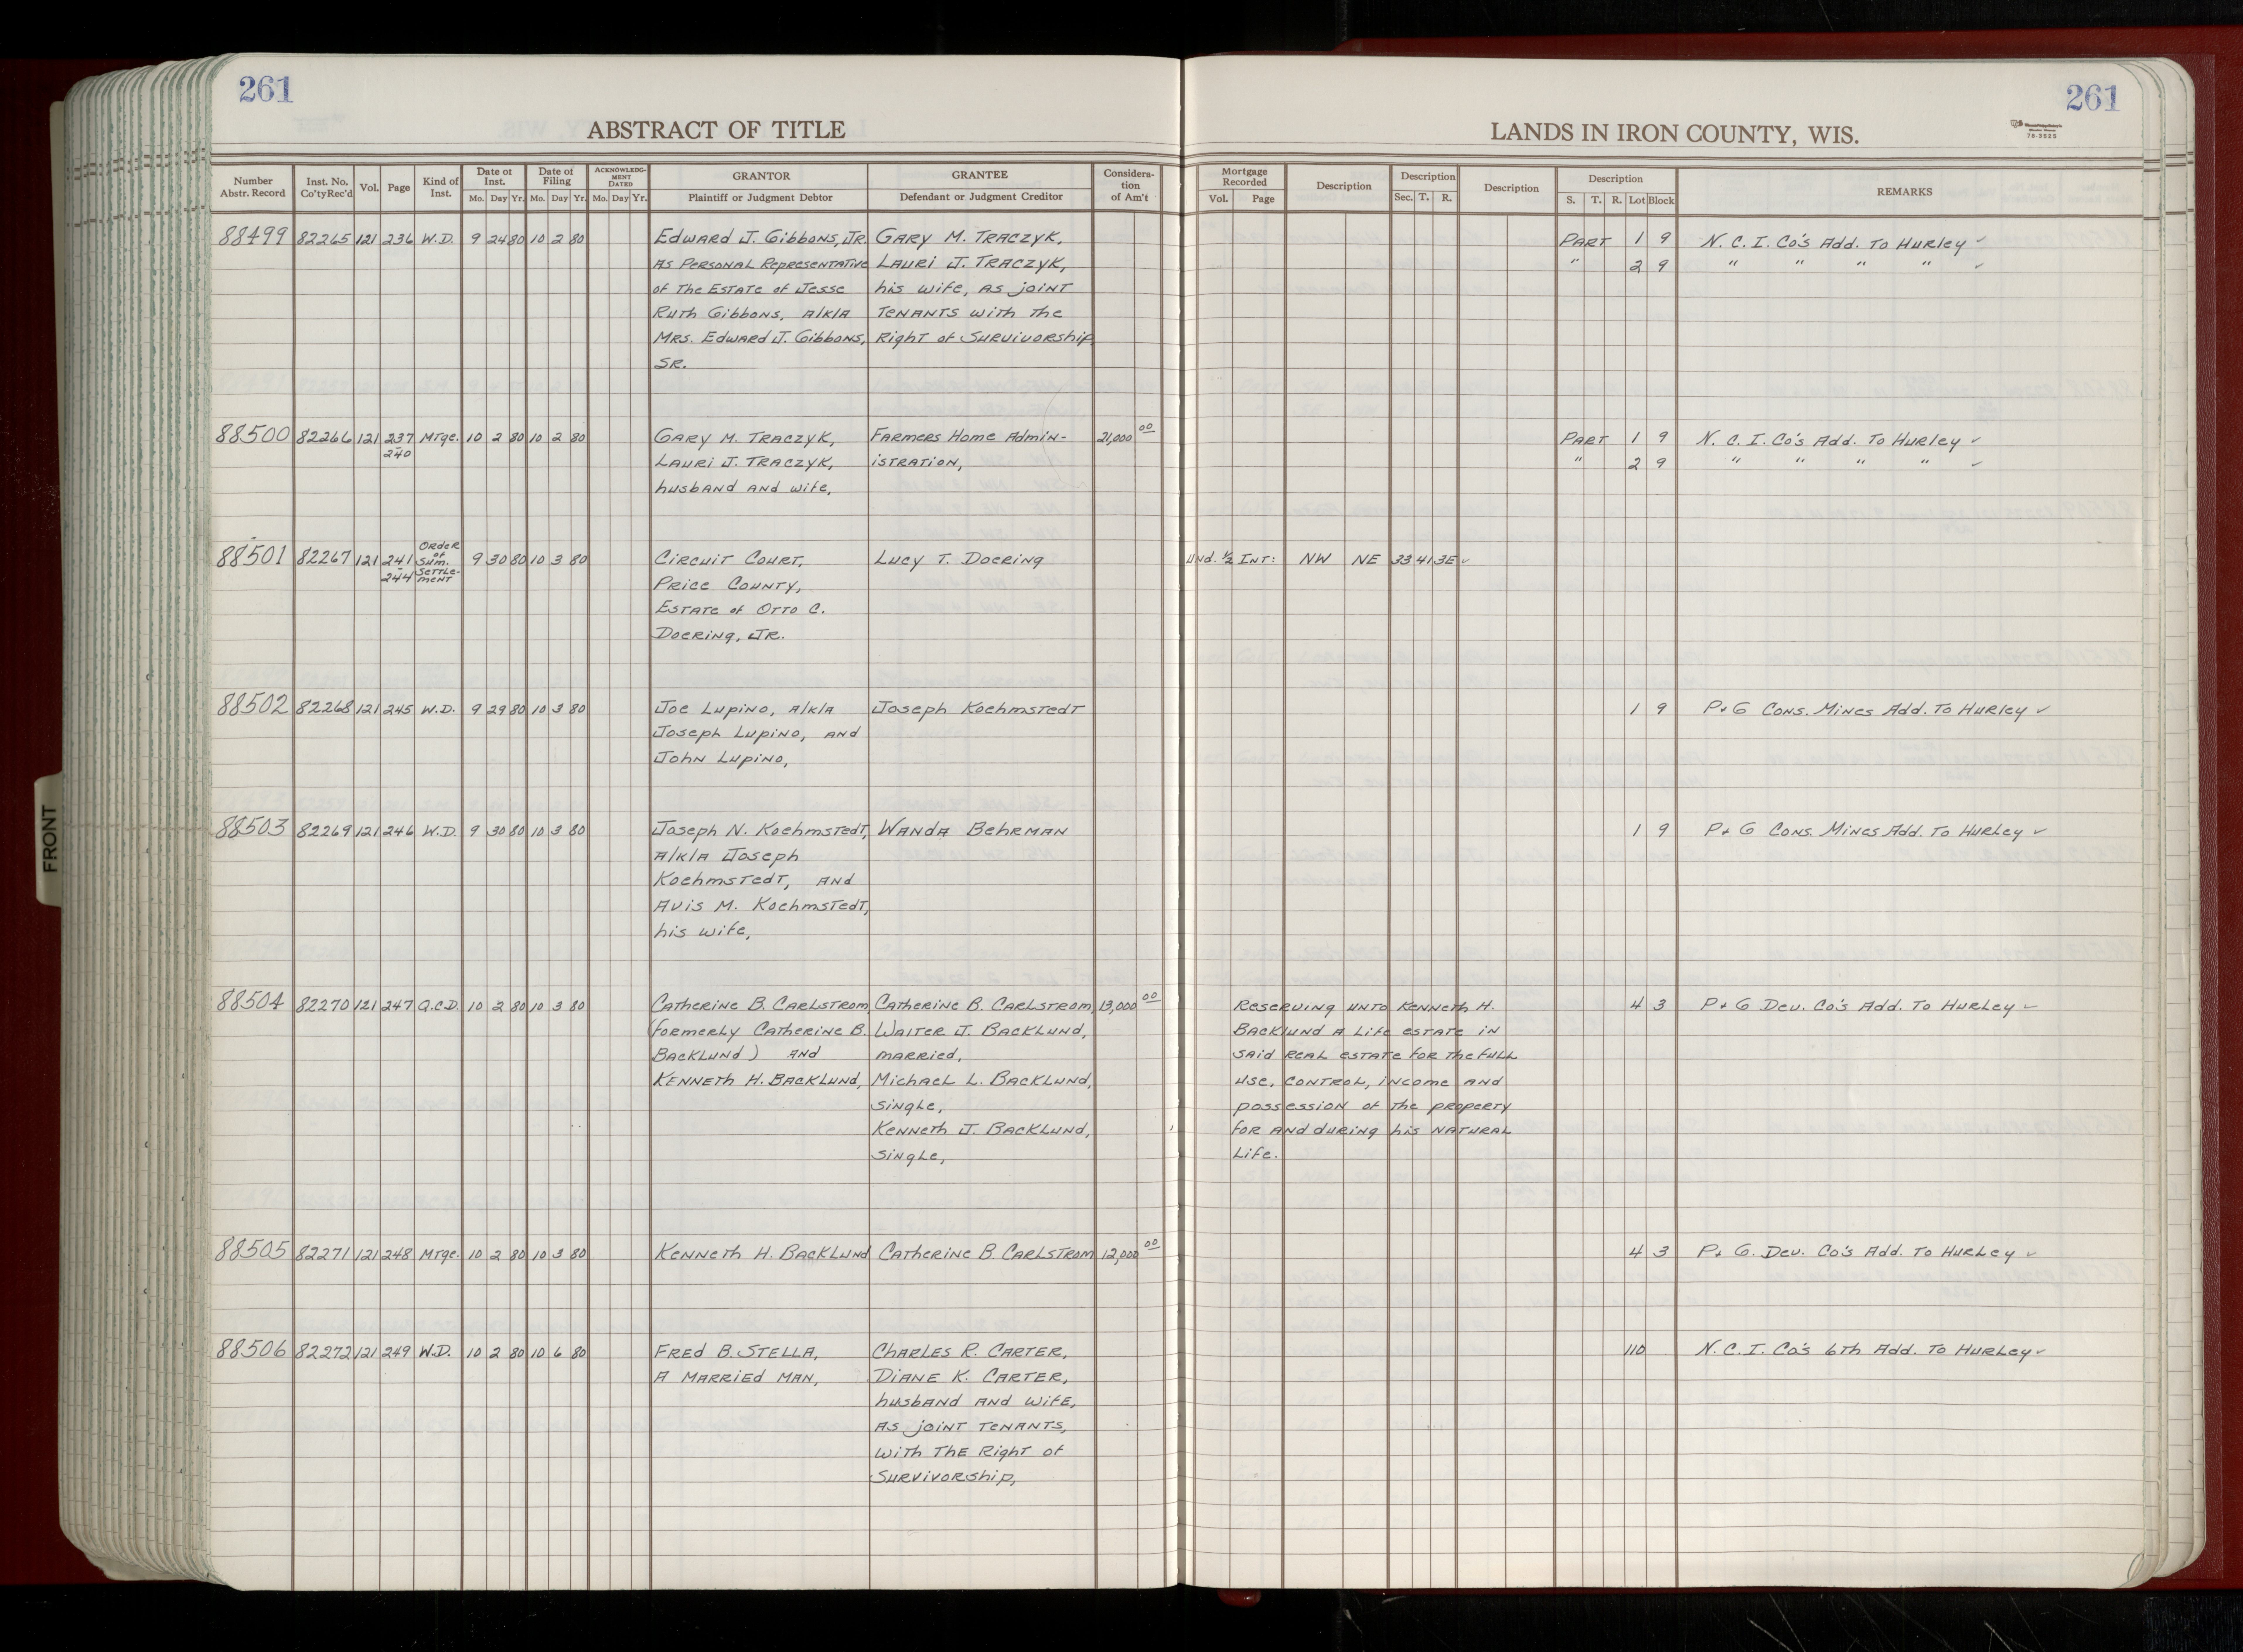 261
261
ABSTRACT OF TITLE
LANDS IN IRON COUNTY, WIS.
Number Abstr. Record | Inst. No. Co'ty Rec'd | Vol. | Page | Kind of Inst. | Date of Inst. Mo. Day Yr. | Date of Filing Mo. Day Yr. | ACKNOWLEDGMENT DATED Mo. Day Yr. | GRANTOR Plaintiff or Judgment Debtor | GRANTEE Defendant or Judgment Creditor | Consideration of Am't | Mortgage Recorded Vol. Page | Description | Description Sec. T. R. | Description | Description S. T. R. Lot Block | REMARKS
88499 82265 121 236 W.D. 9 24 80 10 2 80 Edward J. Gibbons, Jr. Gary M. Traczyk, Part 1 9 N. C. I. Co's Add. To Hurley ✓
As Personal Representative Lauri J. Traczyk, " 2 9 " " " " ✓
of The Estate of Jesse his wife, as joint
Ruth Gibbons, a/k/a Tenants with the
Mrs. Edward J. Gibbons, Right of Survivorship
Sr.
88500 82266 121 237 Mtge. 10 2 80 10 2 80 Gary M. Traczyk, Farmers Home Admin- 21,000 00 Part 1 9 N. C. I. Co's Add. To Hurley ✓
240 Lauri J. Traczyk, istration, " 2 9 " " " " ✓
husband and wife,
88501 82267 121 241-244 Order of Sum. Settle-ment 9 30 80 10 3 80 Circuit Court, Lucy T. Doering Und. 1/2 Int: NW NE 33 41 3E ✓
Price County,
Estate of Otto C.
Doering, Jr.
88502 82268 121 245 W.D. 9 29 80 10 3 80 Joe Lupino, a/k/a Joseph Koehmstedt 1 9 P+G Cons. Mines Add. To Hurley ✓
Joseph Lupino, and
John Lupino,
88503 82269 121 246 W.D. 9 30 80 10 3 80 Joseph N. Koehmstedt, Wanda Behrman 1 9 P+G Cons. Mines Add. To Hurley ✓
a/k/a Joseph
Koehmstedt, and
Avis M. Koehmstedt,
his wife,
88504 82270 121 247 Q.C.D. 10 2 80 10 3 80 Catherine B. Carlstrom Catherine B. Carlstrom, 13,000 00 Reserving unto Kenneth H. 4 3 P+G Dev. Co's Add. To Hurley ✓
(formerly Catherine B. Walter J. Backlund, Backlund a life estate in
Backlund) and married, said real estate for the full
Kenneth H. Backlund, Michael L. Backlund, use, control, income and
single, possession of the property
Kenneth J. Backlund, for and during his natural
single, life.
88505 82271 121 248 Mtge. 10 2 80 10 3 80 Kenneth H. Backlund Catherine B. Carlstrom 12,000 00 4 3 P+G. Dev. Co's Add. To Hurley ✓
88506 82272 121 249 W.D. 10 2 80 10 6 80 Fred B. Stella, Charles R. Carter, 110 N. C. I. Co's 6th Add. To Hurley ✓
a married man, Diane K. Carter,
husband and wife,
as joint tenants,
with the Right of
Survivorship,
FRONT